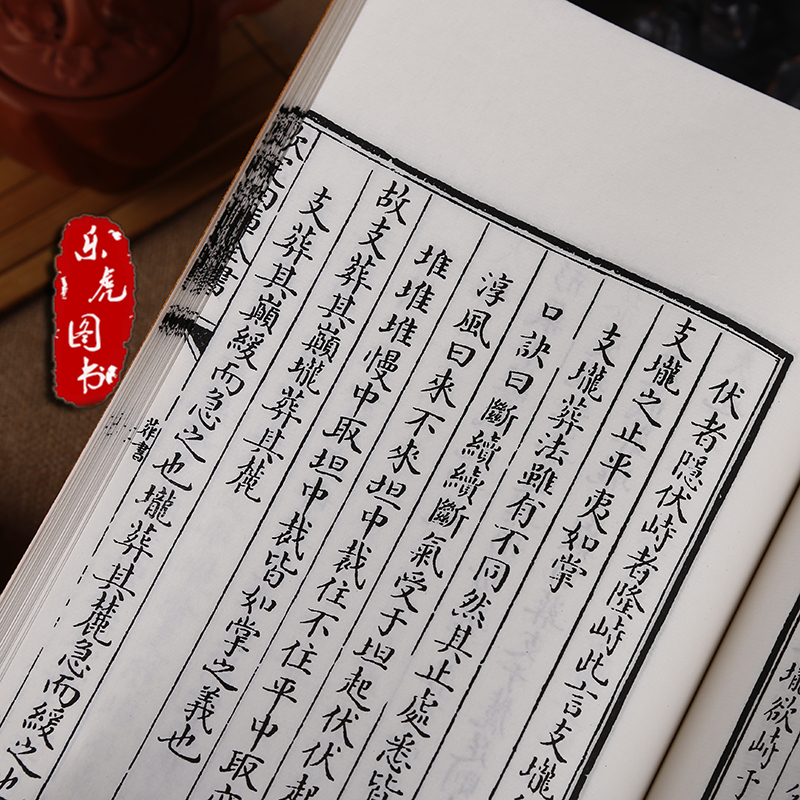 伏者隱伏峙者隆峙此言支壠
支壠之止平夷如掌
支壠葬法雖有不同然其止處悉皆
口訣曰斷續續斷氣受于坦起伏伏起
淳風曰來不來坦中裁住不住平中取
堆堆堆慢中取坦中裁皆如掌之義也
故支葬其巔壠葬其麓
支葬其巔緩而急之也壠葬其麓急而緩之也
欽定四庫全書
葬書
壠欲峙于
乐虎图书